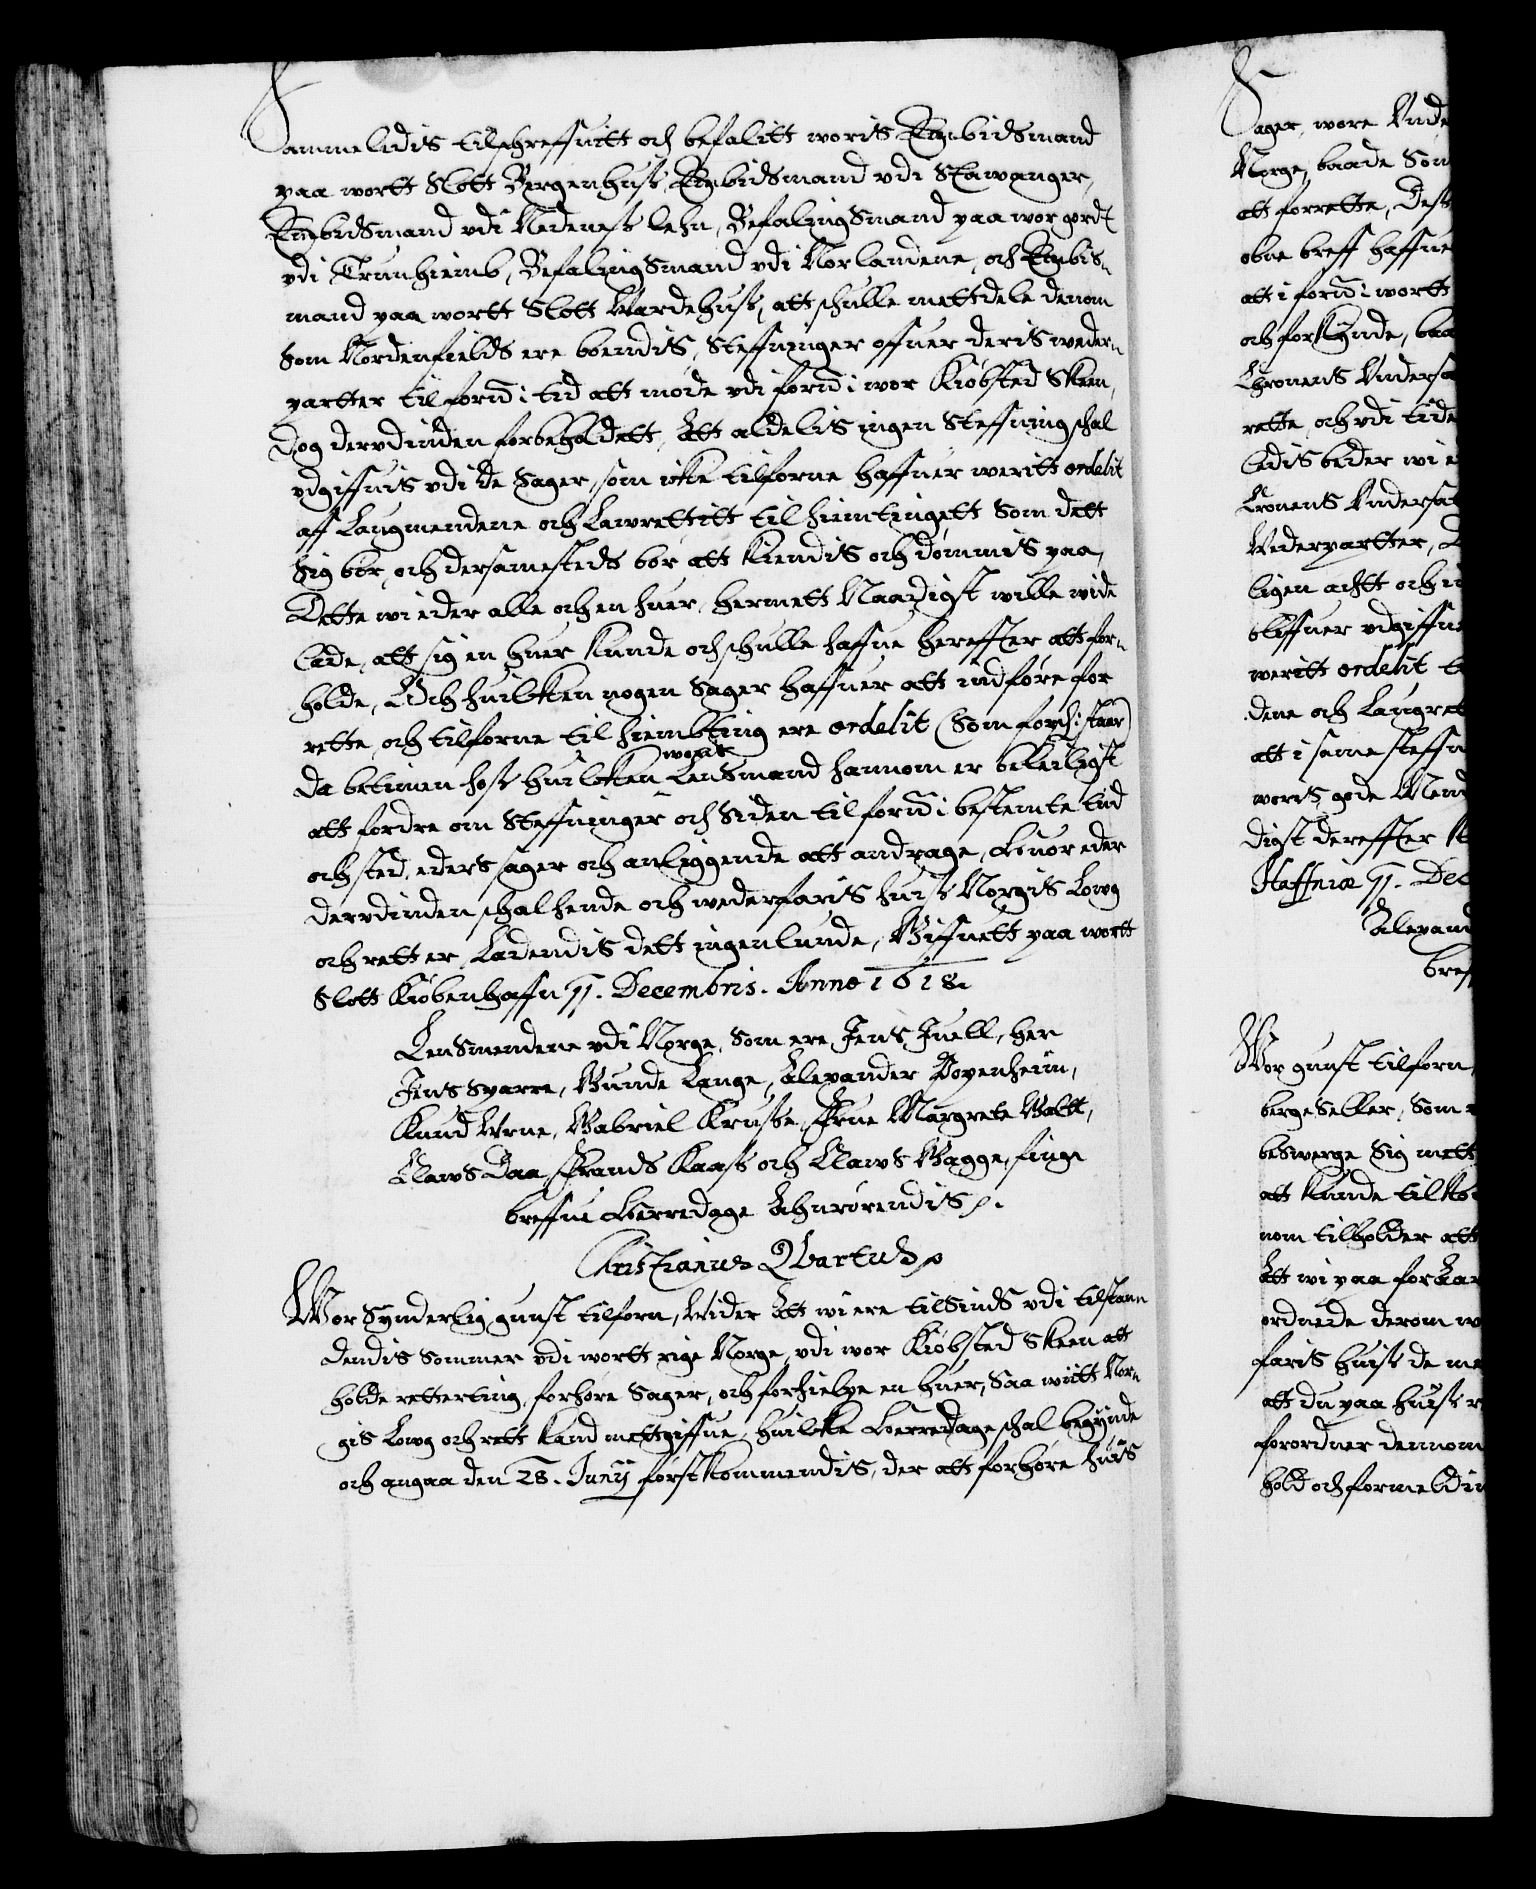 Sammeledis tilschreffuitt och befalitt woris Embidsmand
paa wortt Slott Bergenhuss, Embidsmand vdi Stawanger,
Embidsmand vdi Nedeness lehn, Befalingsmand paa wor gord
vdi Trunhiemb, Befalingsmand vdi Norlandene, och Embis-
mand paa wortt Slott Wardehuss, att schulle mettdele denom
som Nordenfields ere boendis, Steffninger offuer deris weder-
partter til forne i tid att møde vdi forne i wor Kiøbsted Skeen,
dog dervdinden forbeholdett, Att aldelis ingen Steffning schal
vdgiffuis vdi de Sager, som icke tilforne haffuer weritt ordelit
aff Laugmendene och Lawrettitt til hiemtingett Som dett
sig bør, och dersamesteds bør att kiendis och dømmis paa,
Dette wi eder alle och en huer hermett Naadigst wille wide
lade, att sig en huer kunde och schulle haffue hereffter att for-
holde, Och huilcken nogen Sager haffuer att indføre for
rette, och tilforne til hiembting ere ordelit (Som forschr: staar)
da betimen hoss huilcken wor Lensmand hannom er beleiligst
att fordre om Steffninger och Siden til forne i bestemte tid
och sted, eders sager och anliggende att andrage, Huor eder
dervdinden schal hende och wederfaris huis Norgis Lowg
och rett er, Ladendis dett ingenlunde, Giffuett paa wortt
Slott Kiøbenhaffn 11. Decembris. Anno 1618.
Lensmendene vdi Norge, Som ere, Jens Juell, her
Jens Sparre, Gunde Lange, Alexander Papenheim,
Knud Wrne, Gabriel Krusse, Frue Margrete Galtt,
Claws Daa, Frands Kaass och Claws Gagge, finge
breffue Herredage Ahnrørendis.
Christianus Qvartus
Wor Synderlig gunst tilforn, Wider Att wi ere tilsinds vdi tilstann
dendis Sommer vdi wortt rige Norge, vdi wor Kiøbsted Skeen att
holde retterting, forhøre Sager, och forhielpe en huer, Saa witt Nor-
gis Lowg och rett kand mettgiffue, huilcke Herredage schal begynde
och angaa den 28. Junij førstkommendis, der att forhøre huis
Sager, wore Vnde
Norge, baade Søn
att forrette, Dess
obne breff haffue
att i forne i wortt
och forkynde, baa
Chronens Vndersa
rette, och vdi tide
ledis beder wi e
Cronens Vndersat
Wederpartter,
ligen achtt och i
bliffuer vdgiffue
weritt ordelit
dene och Laugret
att i same steffn
woris gode Mend
digst dereffter
Haffniæ 11. Dec
Alexand
breff
Wor gunst tilforn,
berge Seller, Som
beswerge Sig mett
att kunde tilko
nom tilholder att
Att wi paa for Lar
ordnede derom w
faris huiss de me
att du paa huiss
forordner dennom
hold och formeldin